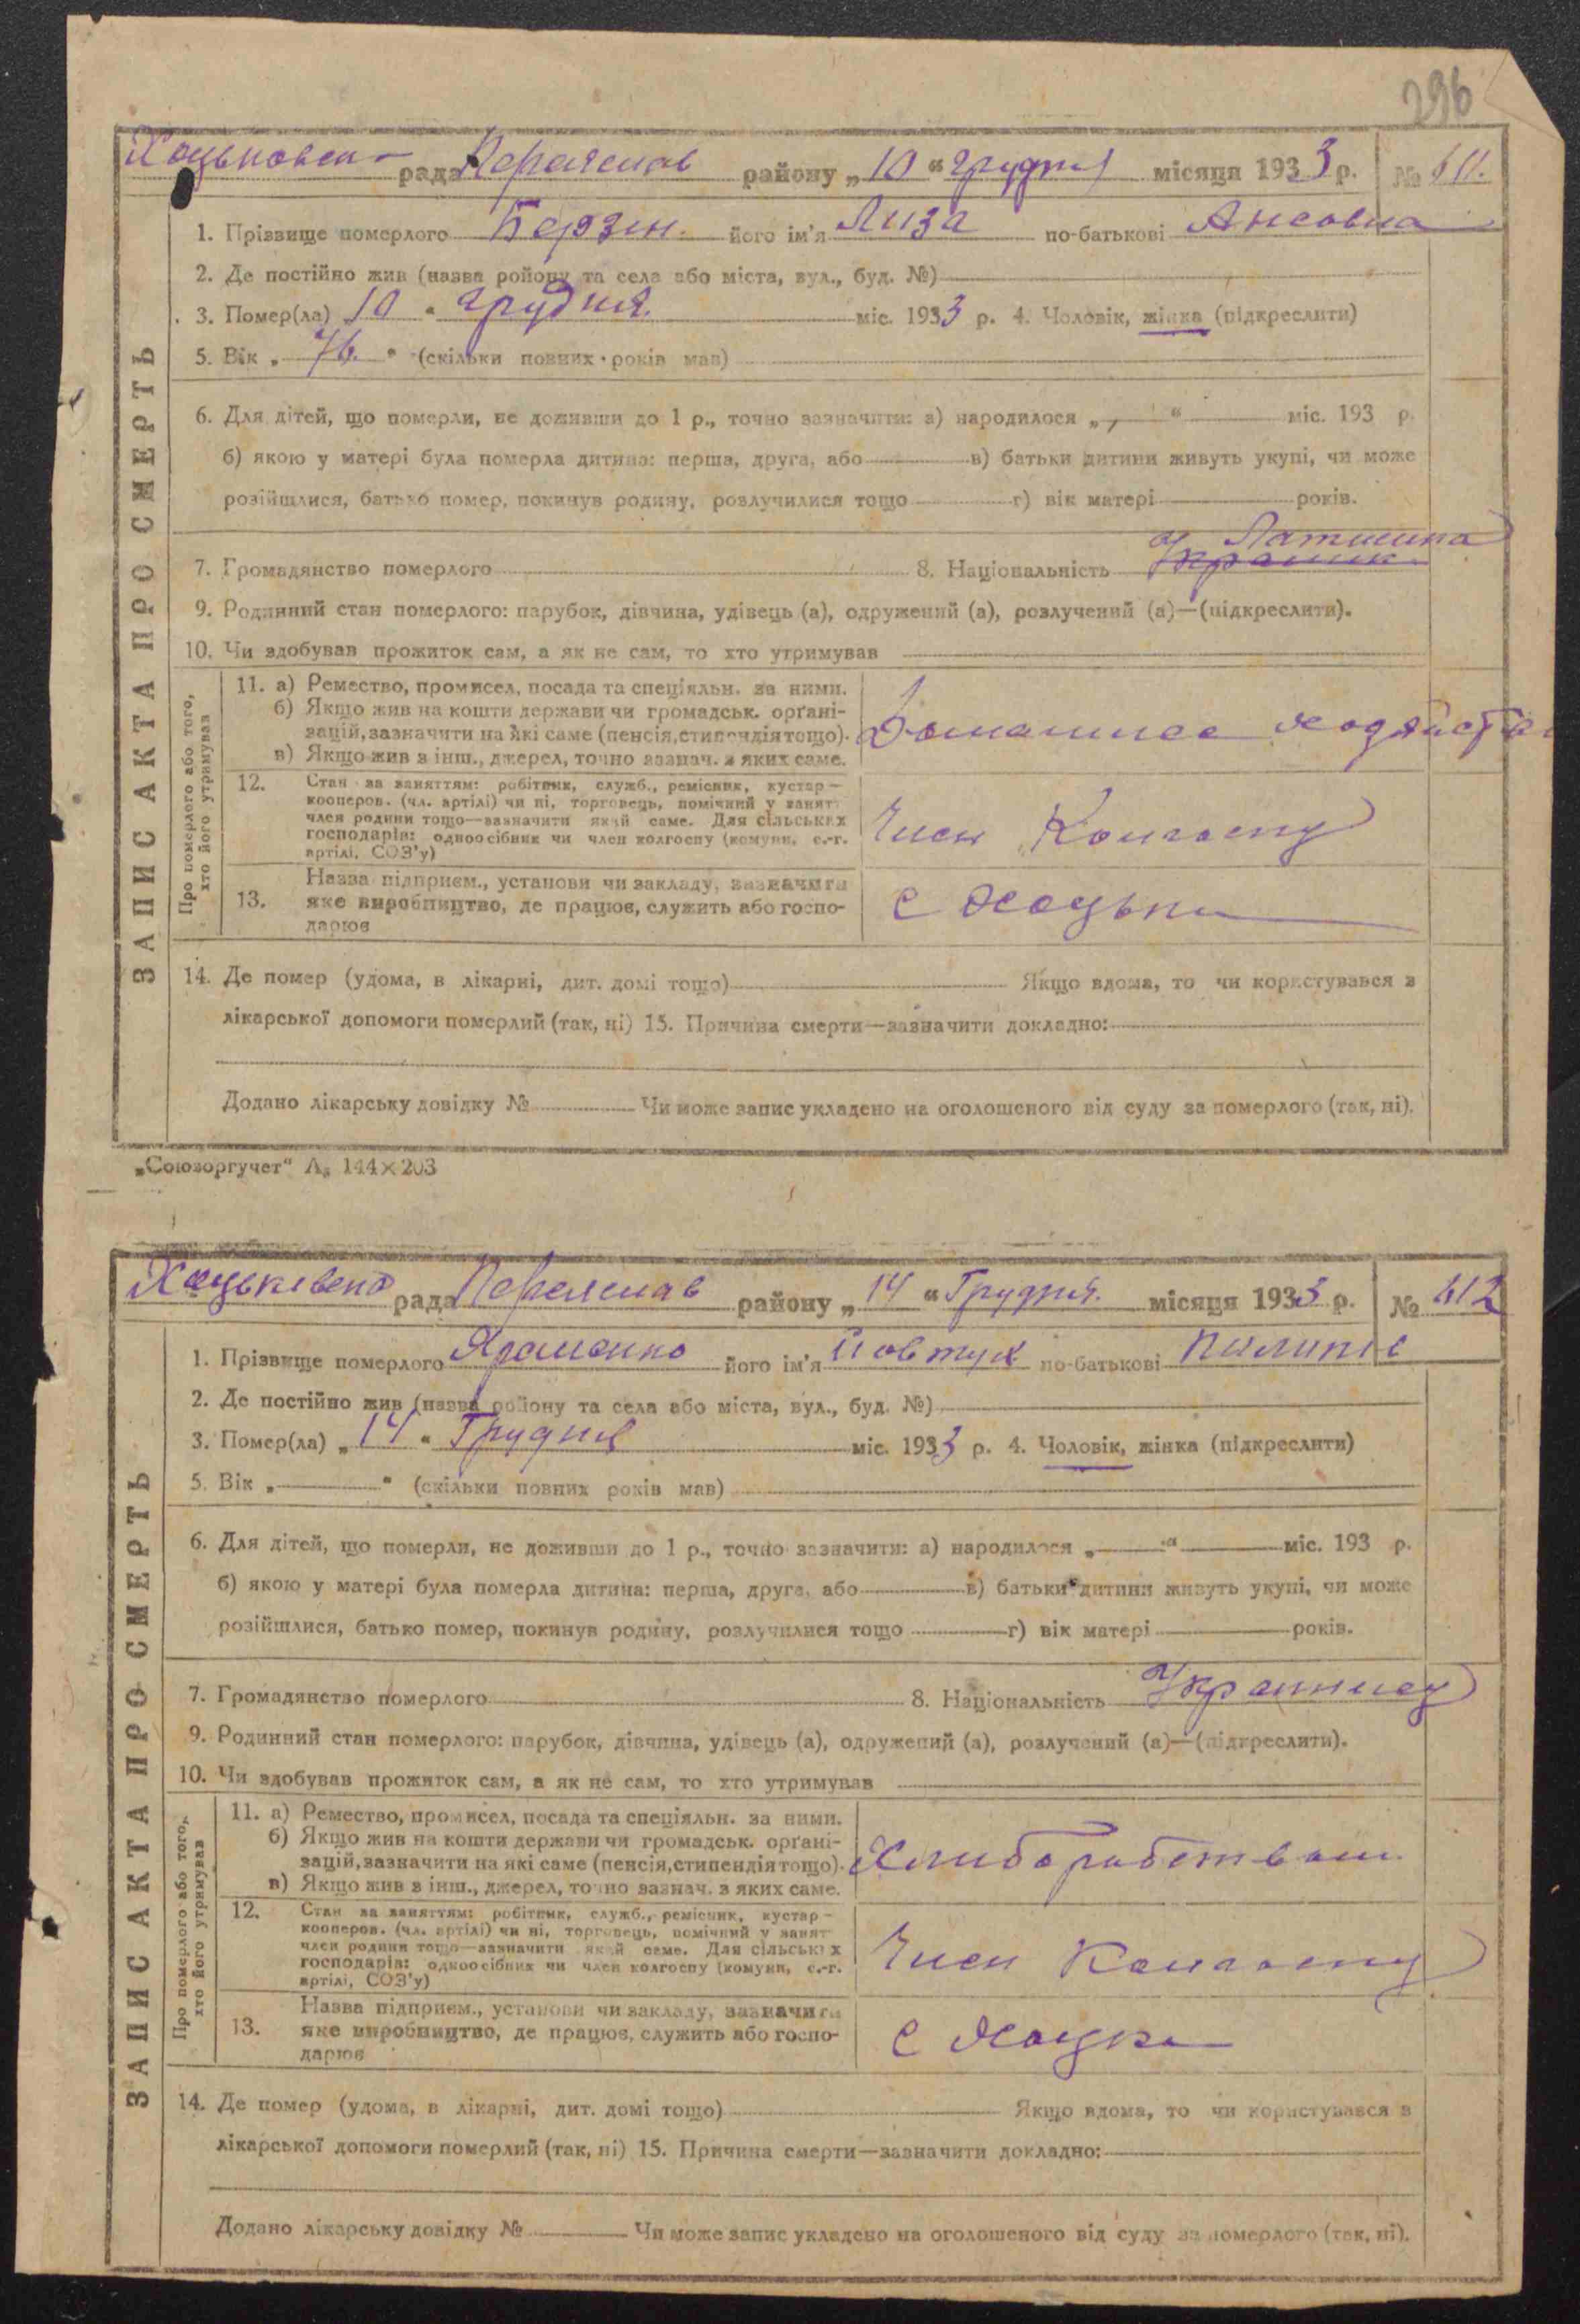 296
Хоцьковен рада Переяслав району „10" грудня місяця 1933 р. № 611.
1. Прізвище померлого Берзин. його ім'я Лиза по-батькові Ансовна
2. Де постійно жив (назва ройону та села або міста, вул., буд. №)
3. Помер(ла) 10 " грудня. міс. 1933 р. 4. Чоловік, жінка (підкреслити)
5. Вік „ 76. " (скільки повних років мав)
6. Для дітей, що померли, не доживши до 1 р., точно зазначити: а) народилося „ " міс. 193 р.
б) якою у матері була померла дитина: перша, друга, або в) батьки дитини живуть укупі, чи може
розійшлися, батько помер, покинув родину, розлучилися тощо г) вік матері років.
Латишка
7. Громадянство померлого 8. Національність Украинк.
9. Родинний стан померлого: парубок, дівчина, удівець (а), одружений (а), розлучений (а)—(підкреслити).
10. Чи здобував прожиток сам, а як не сам, то хто утримував
ЗАПИС АКТА ПРО СМЕРТЬ
Про померлого або того,
хто його утримував
11. а) Ремество, промисел, посада та спеціяльн. за ними.
б) Якщо жив на кошти держави чи громадськ. орґані-
зацій, зазначити на які саме (пенсія, стипендія тощо).
в) Якщо жив з інш., джерел, точно зазнач. з яких саме.
Домашнее хозяйство
12. Стан за заняттям: робітник, служб., ремісник, кустар—
кооперов. (чл. артілі) чи ні, торговець, помічний у занят
член родини тощо—зазначити який саме. Для сільських
господарів: одноосібник чи член колгоспу (комуни, с.-г.
артілі, СОЗ'у)
Член Колгоспу
13. Назва підприєм., установи чи закладу, зазначити
яке виробництво, де працює, служить або госпо-
дарює
С Хоцьки
14. Де помер (удома, в лікарні, дит. домі тощо) Якщо вдома, то чи користувався з
лікарської допомоги померлий (так, ні) 15. Причина смерти—зазначити докладно:
Додано лікарську довідку № Чи може запис укладено на оголошеного від суду за померлого (так, ні).
„Союзоргучет" А₅ 144×203
Хоцьківска рада Переяслав району „14" Грудня. місяця 1933 р. № 612
1. Прізвище померлого його ім'я Йовтух по-батькові Пилипів
2. Де постійно жив (назва ройону та села або міста, вул., буд. №)
3. Помер(ла) „14" Грудня міс. 1933 р. 4. Чоловік, жінка (підкреслити)
5. Вік „ " (скільки повних років мав)
6. Для дітей, що померли, не доживши до 1 р., точно зазначити: а) народилося „ " міс. 193 р.
б) якою у матері була померла дитина: перша, друга, або в) батьки дитини живуть укупі, чи може
розійшлися, батько помер, покинув родину, розлучилися тощо г) вік матері років.
7. Громадянство померлого 8. Національність Украинец
9. Родинний стан померлого: парубок, дівчина, удівець (а), одружений (а), розлучений (а)—(підкреслити).
10. Чи здобував прожиток сам, а як не сам, то хто утримував
ЗАПИС АКТА ПРО СМЕРТЬ
Про померлого або того,
хто його утримував
11. а) Ремество, промисел, посада та спеціяльн. за ними.
б) Якщо жив на кошти держави чи громадськ. орґані-
зацій, зазначити на які саме (пенсія, стипендія тощо).
в) Якщо жив з інш., джерел, точно зазнач. з яких саме.
Хлиборобством
12. Стан за заняттям: робітник, служб., ремісник, кустар—
кооперов. (чл. артілі) чи ні, торговець, помічний у занят
член родини тощо—зазначити який саме. Для сільських
господарів: одноосібник чи член колгоспу (комуни, с.-г.
артілі, СОЗ'у)
Член Колгоспу
13. Назва підприєм., установи чи закладу, зазначити
яке виробництво, де працює, служить або госпо-
дарює
С Хоцки
14. Де помер (удома, в лікарні, дит. домі тощо) Якщо вдома, то чи користувався з
лікарської допомоги померлий (так, ні) 15. Причина смерти—зазначити докладно:
Додано лікарську довідку № Чи може запис укладено на оголошеного від суду за померлого (так, ні).